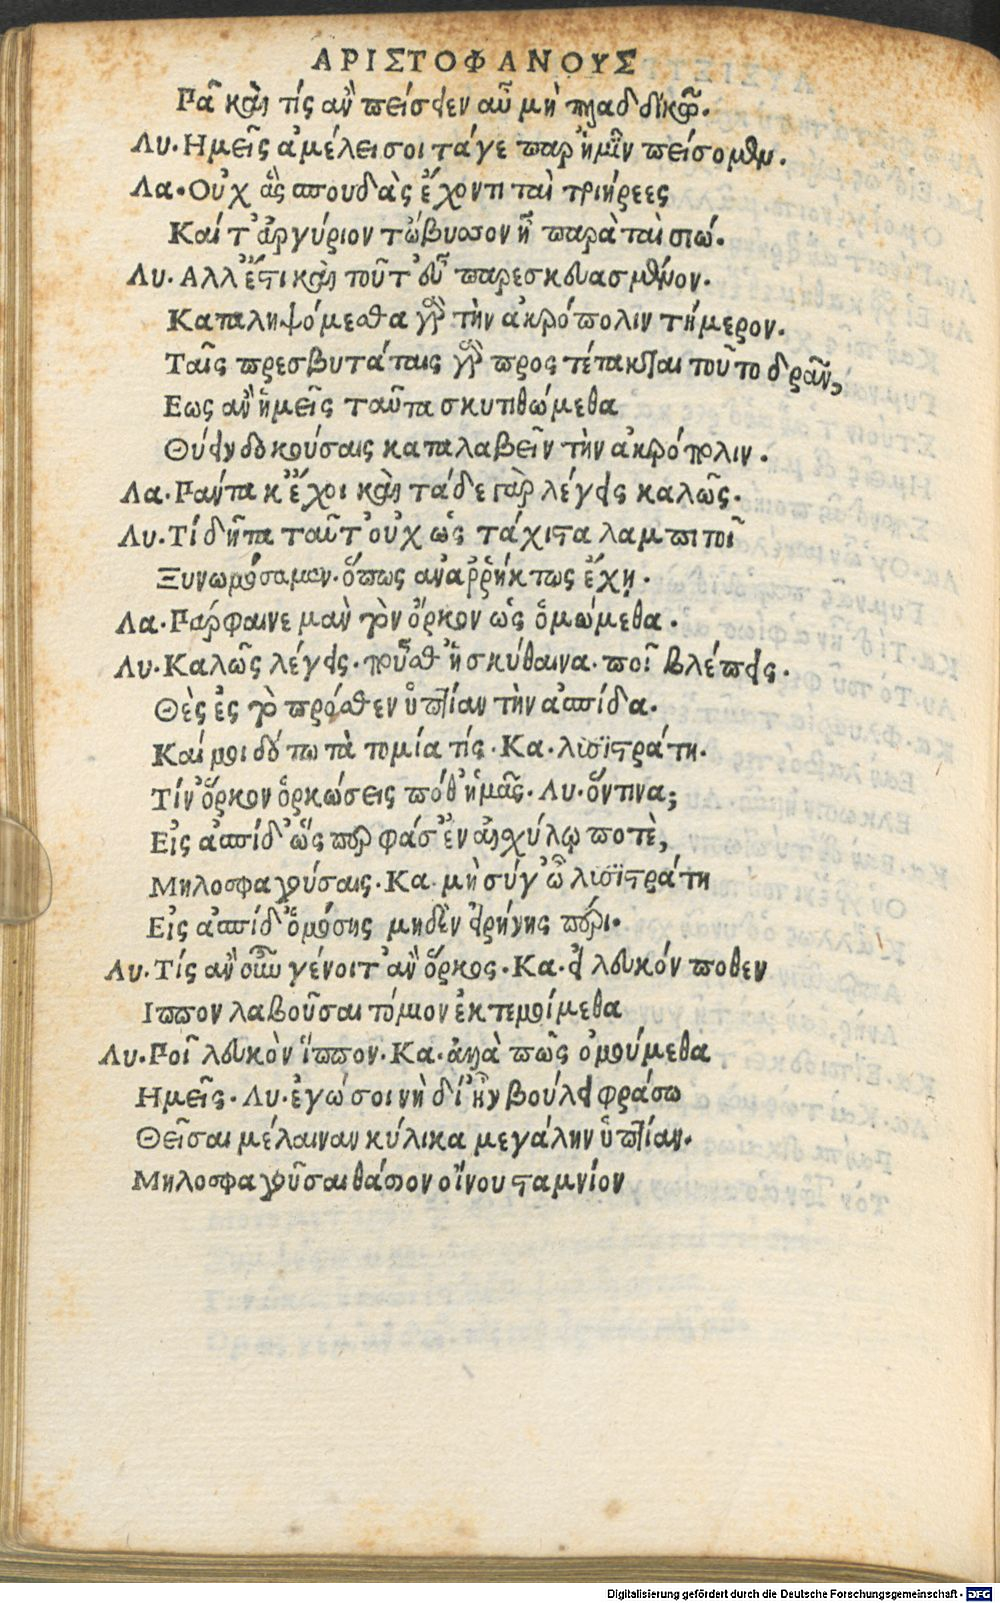 ΑΡΙΣΤΟΦΑΝΟΥΣ
Πᾶ καὶ τίς ἂν πείσειεν αὖ μὴ πλαδδικῆν.
Λυ. Ημεῖς ἀμέλει σοι τάγε παρ' ἡμῖν πείσομεν.
Λα. Οὐχ ἇς σπουδὰς ἔχοντι ταὶ τριήρεες
Καί τ' ἀργύριον τὤβυσσον ᾖ παρὰ ταὶ σιώ.
Λυ. Αλλ' ἔστι καὶ τοῦτ' εὖ παρεσκευασμένον.
Καταληψόμεσθα γὰρ τὴν ἀκρόπολιν τήμερον.
Ταῖς πρεσβυτάταις γὰρ προστέτακται τοῦτο δρᾶν,
Εως ἂν ἡμεῖς ταῦτα σκυτιθώμεθα
Θύειν δοκούσαις καταλαβεῖν τὴν ἀκρόπολιν.
Λα. Πάντα κ' ἔχοι καὶ τάδε γὰρ λέγεις καλῶς.
Λυ. Τί δῆτα ταῦτ' οὐχ ὡς τάχιστα λαμπιτοῖ
Ξυνωμόσαμεν. ὅπως ἀναῤῥήκτως ἔχῃ.
Λα. Πάρφαινε μὰν τὸν ὅρκον ὡς ὁμώμεθα.
Λυ. Καλῶς λέγεις. ποῦσθ' ἡ σκύθαινα. ποῖ βλέπεις.
Θὲς ἐς τὸ πρόσθεν ὑπτίαν τὴν ἀσπίδα.
Καί μοι δότω τὰ τομία τίς. Κα. λυσιστράτη.
Τίν' ὅρκον ὁρκώσεις πόθ' ἡμᾶς. Λυ. ὅντινα;
Εἰς ἀσπίδ' ὥς περ φάσ' ἐν αἰσχύλῳ ποτὲ,
Μηλοσφαγούσαις. Κα. μὴ σύγ' ὦ λυσιστράτη
Εἰς ἀσπίδ' ὀμόσῃς μηδὲν εἰρήνης πέρι.
Λυ. Τίς ἂν οὖν γένοιτ' ἂν ὅρκος. Κα. εἰ λευκόν ποθεν
Ιππον λαβοῦσαι τόμιον ἐκτεμοίμεθα
Λυ. Ποῖ λευκὸν ἵππον. Κα. ἀλλὰ πῶς ὀμούμεθα
Ημεῖς. Λυ. ἐγώ σοι νὴ δί' ἢν βούλει φράσω
Θεῖσαι μέλαιναν κύλικα μεγάλην ὑπτίαν.
Μηλοσφαγοῦσαι θάσιον οἴνου σταμνίον
Digitalisierung gefördert durch die Deutsche Forschungsgemeinschaft - DFG